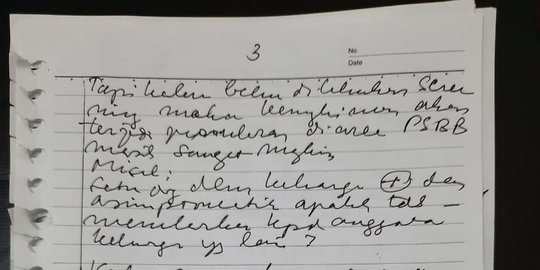 3
No
Date
Tapi kalau belum dilakukan Scree
ning maka kemungkinan akan
terjadi penularan di area PSBB
masih sangat mungkin
Misal:
Satu org dlm keluarga (+) dan
asimptomatik apakah tdk
menularkan kpd anggota
keluarga yg lain?